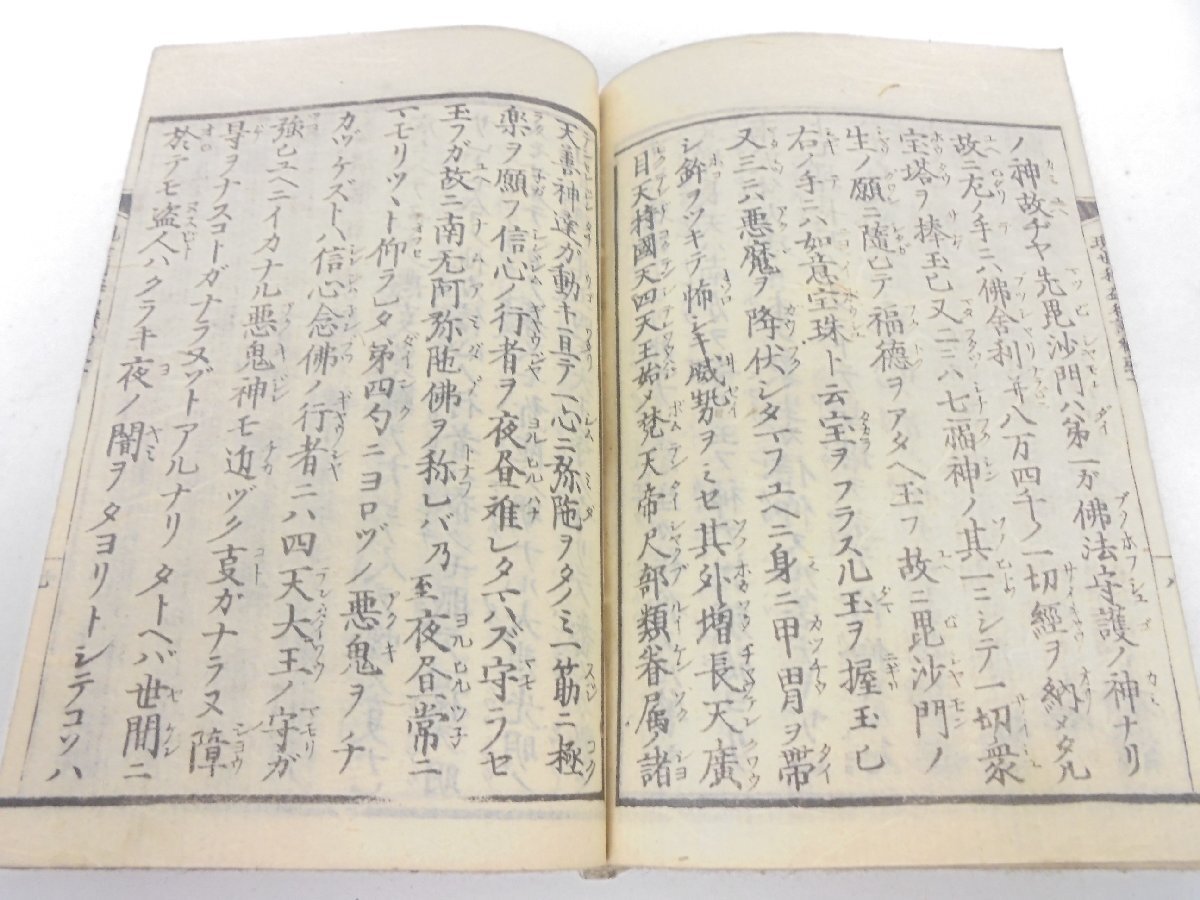 ノ神故ヂヤ先毘沙門ハ第一ガ佛法守護ノ神ナリ
故ニ左ノ手ニハ佛舎利并八万四千ノ一切經ヲ納メタル
宝塔ヲ捧玉ヒ又ニハ七福神ノ其一ニシテ一切衆
生ノ願ニ隨ヒテ福德ヲアタヘ玉フ故ニ毘沙門ノ
右ノ手ニハ如意宝珠ト云宝ヲフラス玉ヲ握玉ヒ
又三ニハ悪魔ヲ降伏シタマフユヘニ身ニ甲冑ヲ帶
シ鉾ヲツキテ怖シキ威勢ヲミセ其外増長天廣
目天持國天四天王始メ梵天帝尺部類眷属ノ諸
天善神達ガ動キ亘テ一心ニ弥陁ヲタノミ一筋ニ極
楽ヲ願フ信心ノ行者ヲ夜昼離レタマハズ守ラセ
玉フガ故ニ南无阿弥陁佛ヲ称レバ乃至夜昼常ニ
マモリツヽト仰ラレタ第四勺ニヨロヅノ悪鬼ヲチ
カヅケズトハ信心念佛ノ行者ニハ四天大王ノ守ガ
強ヒユヘニイカナル悪鬼神モ近ヅク叓ガナラヌ障
导ヲナスコトガナラヌゾトアルナリ タトヘバ世間ニ
於テモ盗人ハクラキ夜ノ闇ヲタヨリトシテコソハ